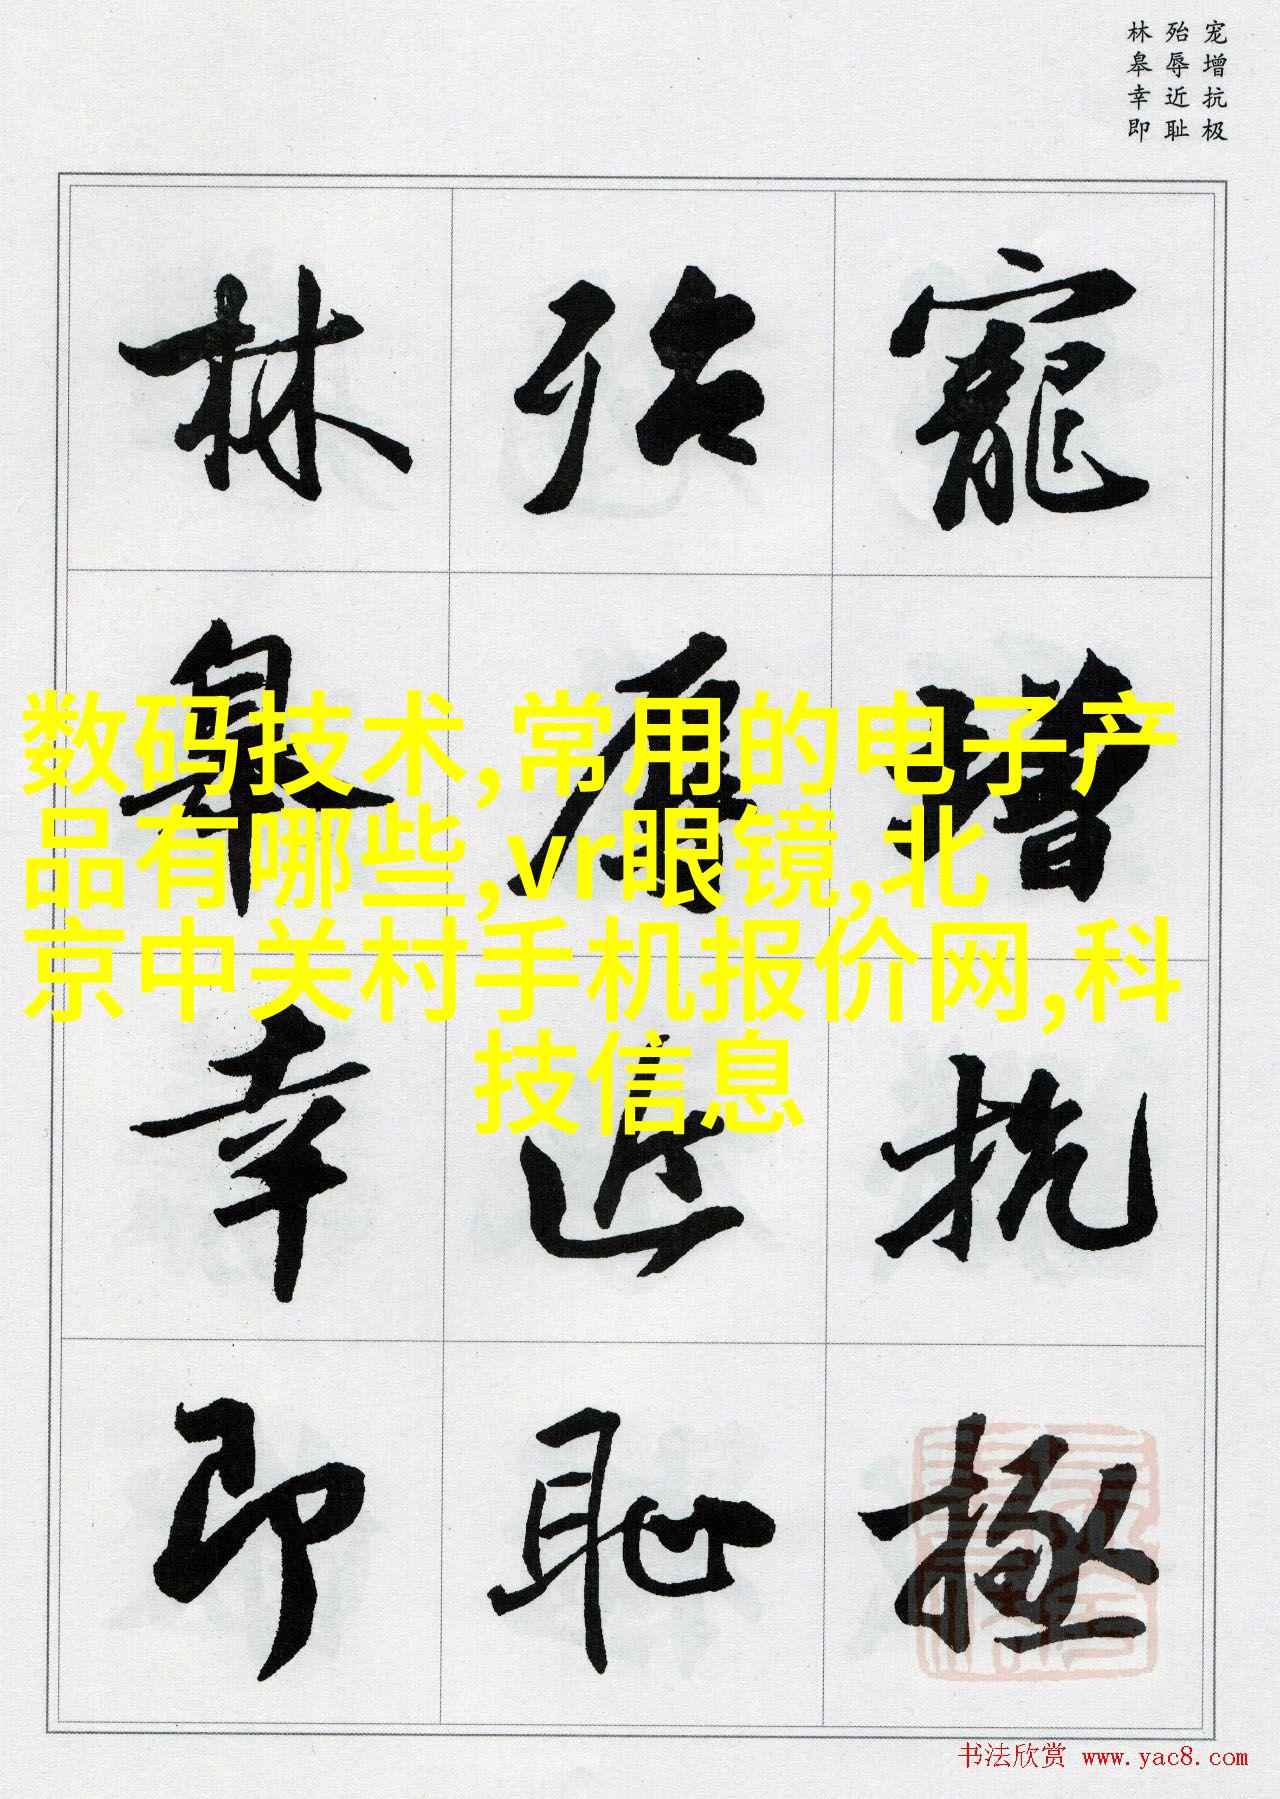 宠增抗极
殆辱近耻
林皋幸即
寵增抗極
殆辱近恥
林皋幸即
数码技术,常用的电子产
品有哪些,vr眼镜,北
京中关村手机报价网,科
技信息
书法欣赏 www.yac8.com